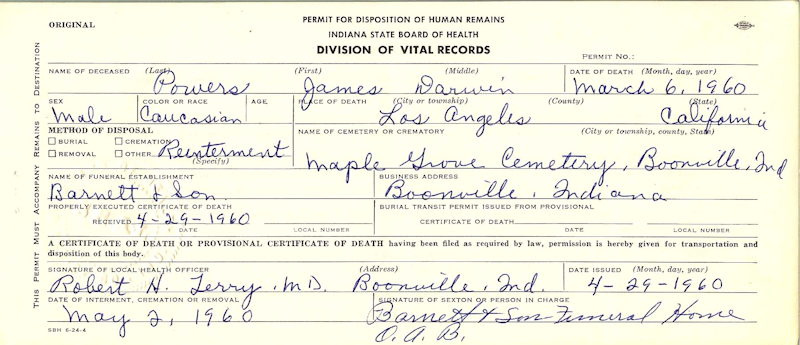 ORIGINAL
PERMIT FOR DISPOSITION OF HUMAN REMAINS
INDIANA STATE BOARD OF HEALTH
DIVISION OF VITAL RECORDS
PERMIT NO.:
THIS PERMIT MUST ACCOMPANY REMAINS TO DESTINATION
NAME OF DECEASED (Last) (First) (Middle) DATE OF DEATH (Month, day, year)
Powers James Darwin March 6, 1960
SEX COLOR OR RACE AGE PLACE OF DEATH (City or township) (County) (State)
Male Caucasian Los Angeles California
METHOD OF DISPOSAL NAME OF CEMETERY OR CREMATORY (City or township, county, State)
BURIAL CREMATION
REMOVAL OTHER Reinterment Maple Grove Cemetery, Boonville, Ind
(Specify)
NAME OF FUNERAL ESTABLISHMENT BUSINESS ADDRESS
Barnett & Son Boonville, Indiana
PROPERLY EXECUTED CERTIFICATE OF DEATH BURIAL TRANSIT PERMIT ISSUED FROM PROVISIONAL
RECEIVED 4-29-1960 CERTIFICATE OF DEATH
DATE LOCAL NUMBER DATE LOCAL NUMBER
A CERTIFICATE OF DEATH OR PROVISIONAL CERTIFICATE OF DEATH having been filed as required by law, permission is hereby given for transportation and
disposition of this body.
SIGNATURE OF LOCAL HEALTH OFFICER (Address) DATE ISSUED (Month, day, year)
Robert H. Terry, M.D. Boonville, Ind. 4-29-1960
DATE OF INTERMENT, CREMATION OR REMOVAL SIGNATURE OF SEXTON OR PERSON IN CHARGE
May 2, 1960 Barnett & Son Funeral Home
SBH 6-24-4 O.A.B.